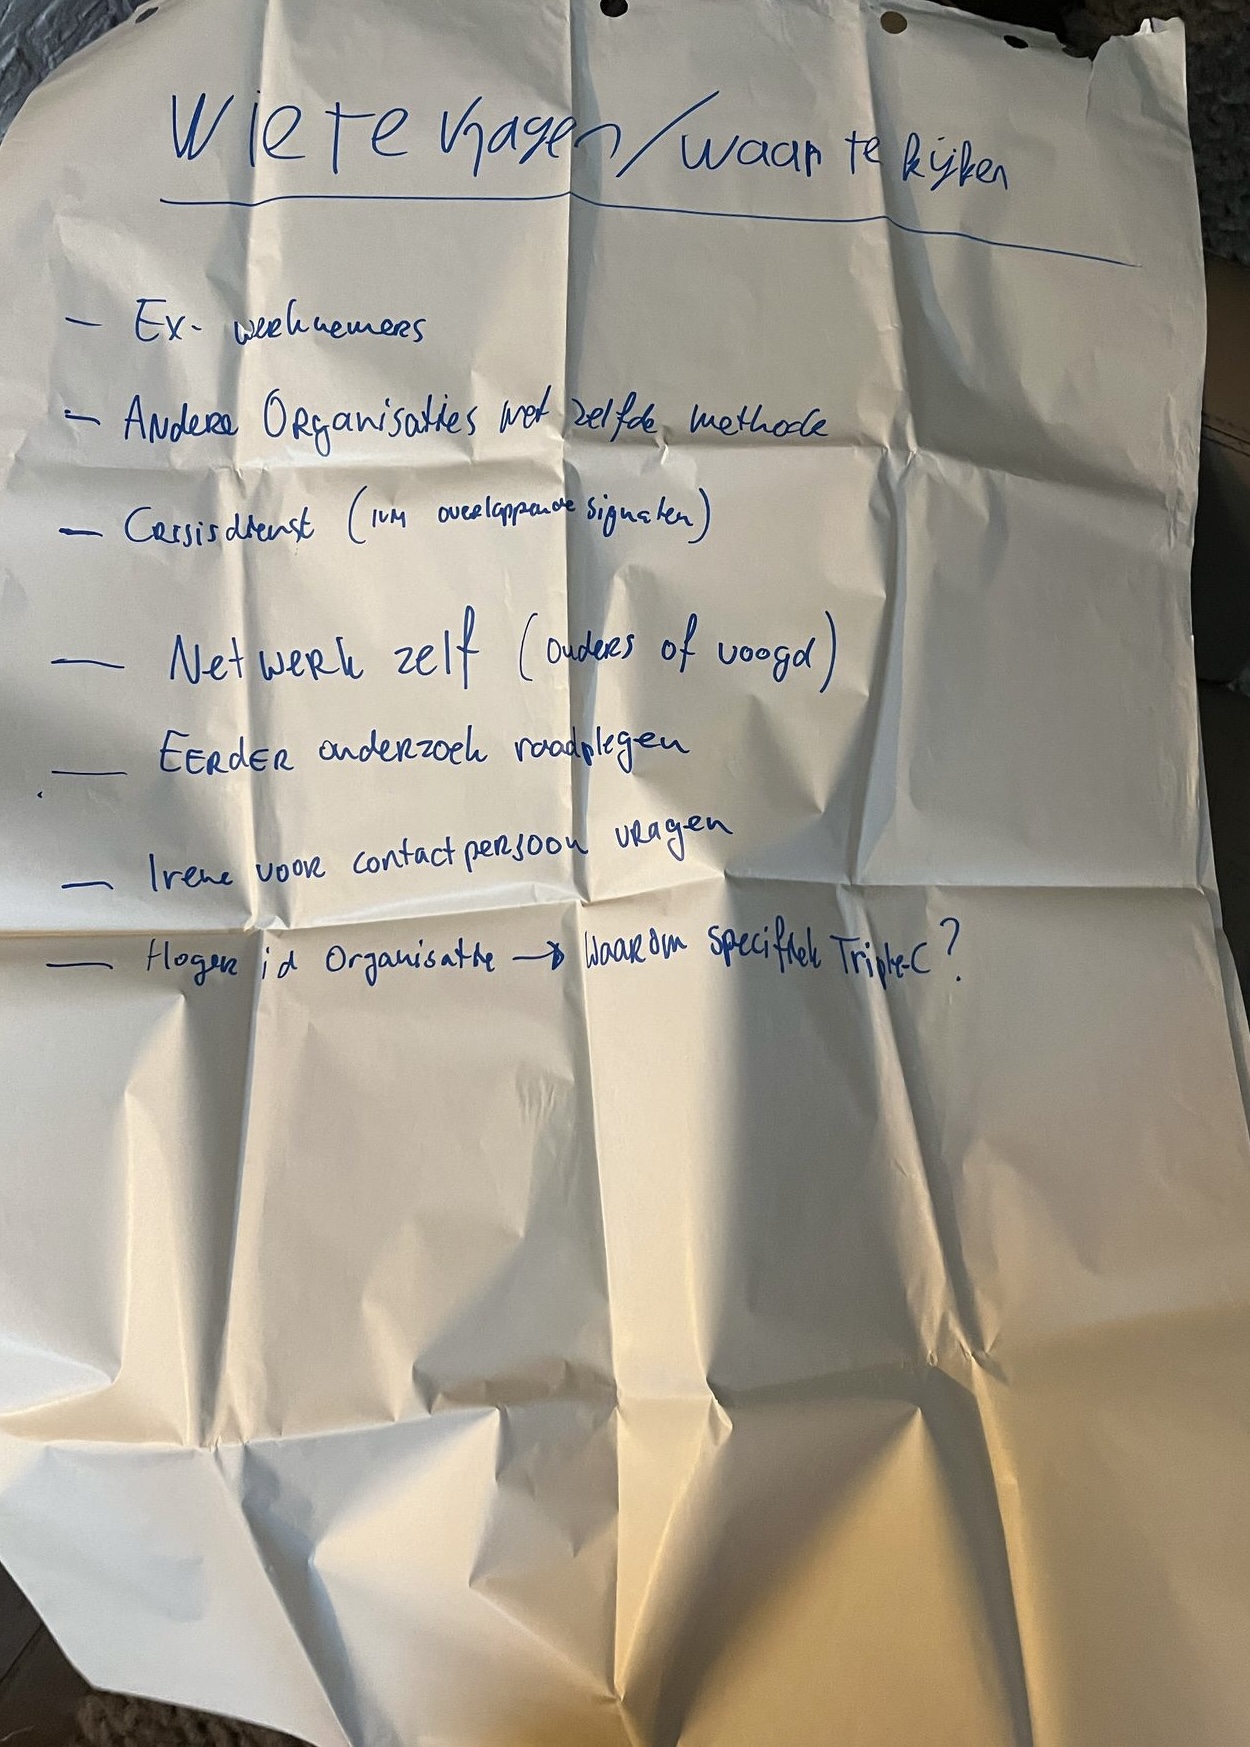 Wie te vragen/waar te kijken
- Ex-werknemers
- Andere Organisaties met zelfde methode
- Crisisdienst (ivm overlappende signalen)
- Netwerk zelf (ouders of voogd)
- Eerder onderzoek raadplegen
- Irene voor contactpersoon vragen
- Hoger id Organisatie → Waarom specifiek Triple-C?